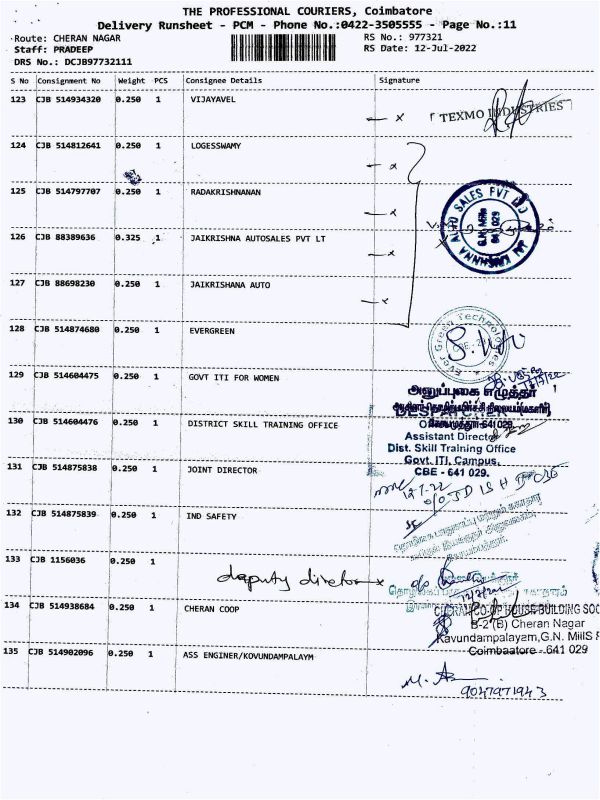 THE PROFESSIONAL COURIERS, Coimbatore
Delivery Runsheet - PCM - Phone No.:0422-3505555 - Page No.:11
Route: CHERAN NAGAR
RS No.: 977321
Staff: PRADEEP
RS Date: 12-Jul-2022
DRS No.: DCJB97732111
S No Consignment No Weight PCS Consignee Details Signature
123 CJB 514934320 0.250 1 VIJAYAVEL
TEXMO INDUSTRIES
124 CJB 514812641 0.250 1 LOGESSWAMY
125 CJB 514797707 0.250 1 RADAKRISHNANAN
JAI KRISHNNA AUTO SALES PVT LTD
G.N. Mills
641 029
126 CJB 88389636 0.325 1 JAIKRISHNA AUTOSALES PVT LT
127 CJB 88698230 0.250 1 JAIKRISHANA AUTO
128 CJB 514874680 0.250 1 EVERGREEN
Ever Green Technologies
129 CJB 514604475 0.250 1 GOVT ITI FOR WOMEN
அனுப்புகை எழுத்தர்
130 CJB 514604476 0.250 1 DISTRICT SKILL TRAINING OFFICE
Assistant Director
Dist. Skill Training Office
Govt. ITI, Campus,
CBE - 641 029.
131 CJB 514875838 0.250 1 JOINT DIRECTOR
12-7-22
132 CJB 514875839 0.250 1 IND SAFETY
133 CJB 1156036 0.250 1
deputy director
134 CJB 514938684 0.250 1 CHERAN COOP
CHERAN CO-OP HOUSE BUILDING SOC
B-2(B) Cheran Nagar
Kavundampalayam,G.N. Mills
Coimbaatore - 641 029
135 CJB 514902096 0.250 1 ASS ENGINER/KOVUNDAMPALAYM
9047971943